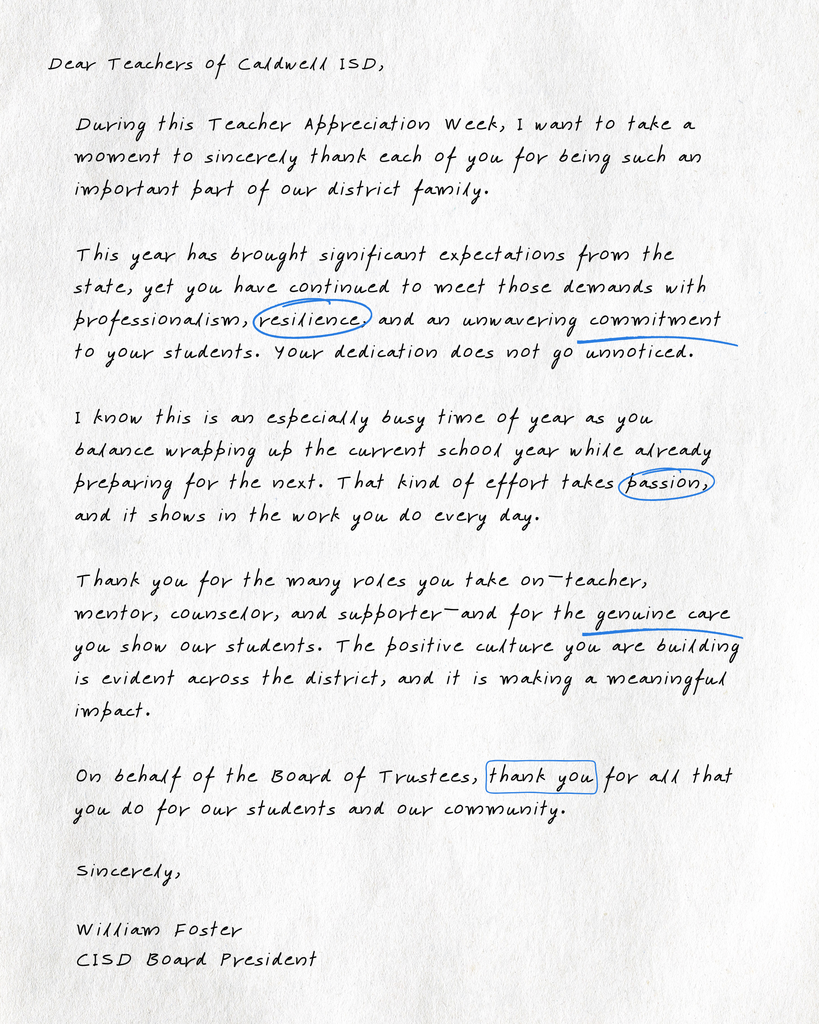 Dear Teachers of Caldwell ISD,
During this Teacher Appreciation Week, I want to take a
moment to sincerely thank each of you for being such an
important part of our district family.
This year has brought significant expectations from the
state, yet you have continued to meet those demands with
professionalism, resilience, and an unwavering commitment
to your students. Your dedication does not go unnoticed.
I know this is an especially busy time of year as you
balance wrapping up the current school year while already
preparing for the next. That kind of effort takes passion,
and it shows in the work you do every day.
Thank you for the many roles you take on—teacher,
mentor, counselor, and supporter—and for the genuine care
you show our students. The positive culture you are building
is evident across the district, and it is making a meaningful
impact.
On behalf of the Board of Trustees, thank you for all that
you do for our students and our community.
Sincerely,
William Foster
CISD Board President